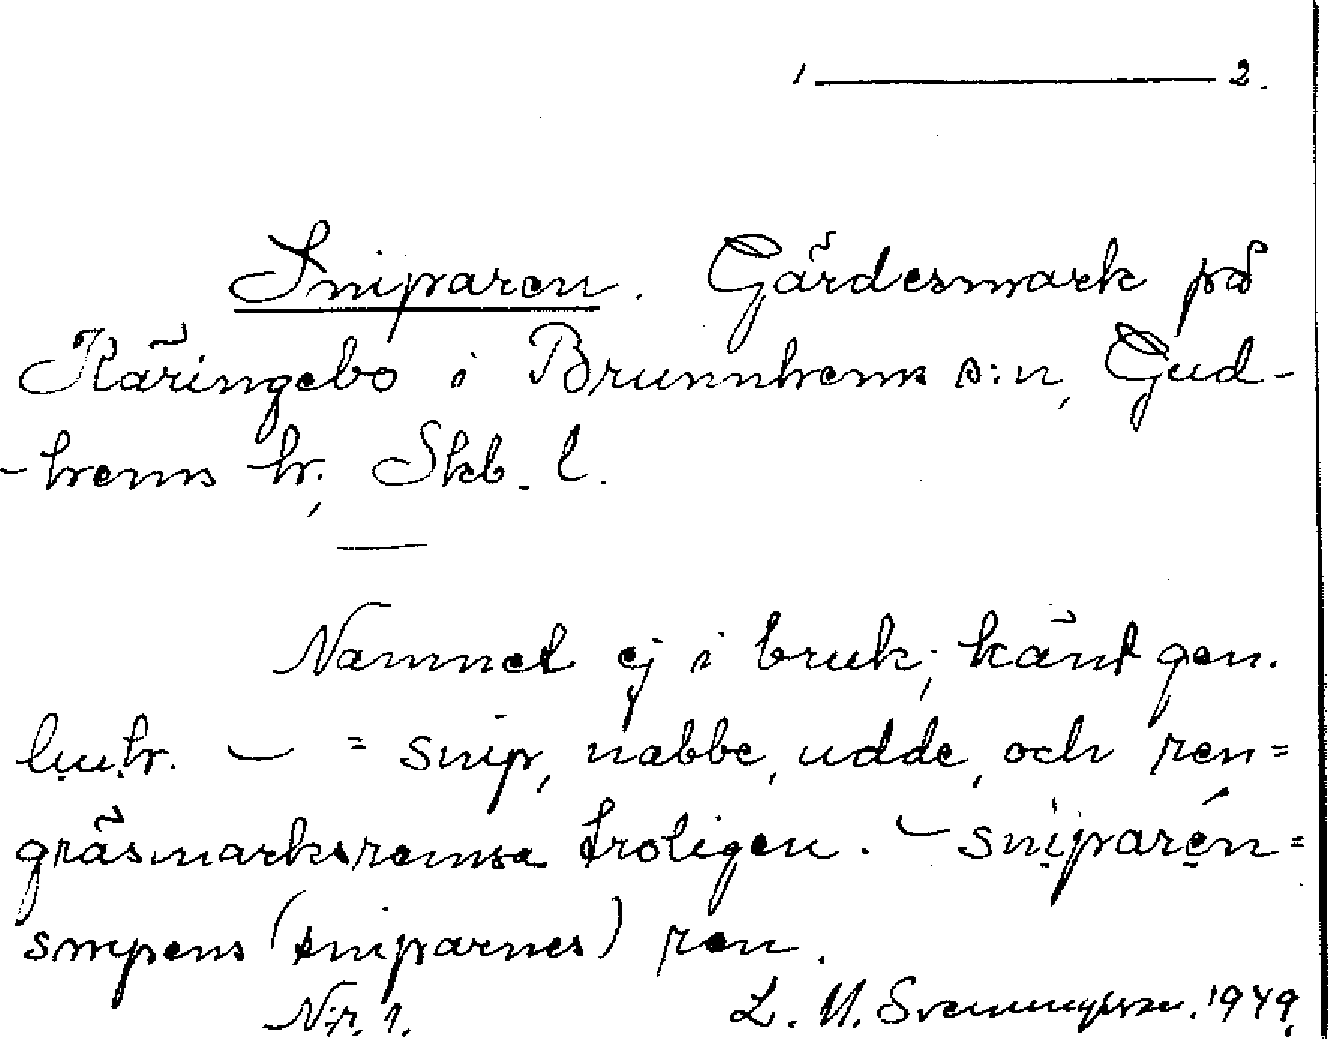 1 ——— 2.
Sniparen. Gärdesmark på
Käringebo i Brunnhems s:n, Gud-
-hems hr, Skb. l.
—
Namnet ej i bruk; känt gen.
lm.hr. – = snip, nabbe, udde, och ren=
gräsmarksremsa troligen. – sniparén=
snipens (sniparnes) ren.
N:r. 1. L. M. Svenungsson. 1949.